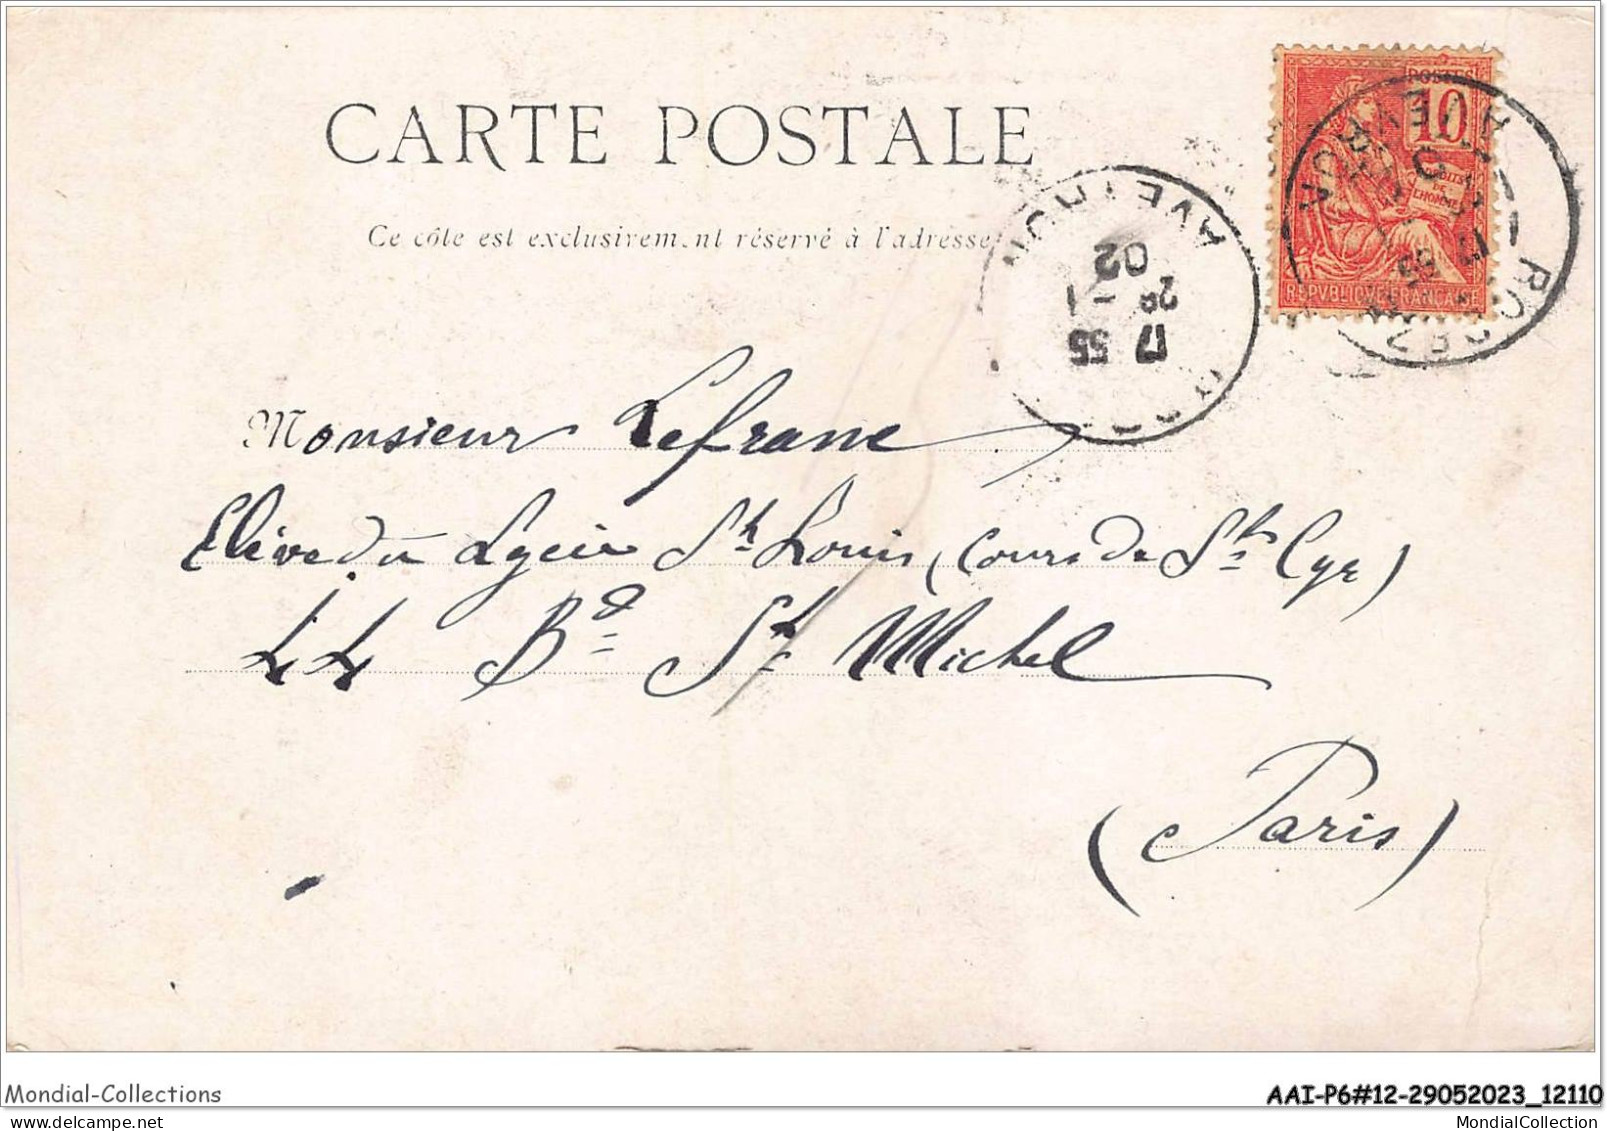 CARTE POSTALE
Ce côté est exclusivement réservé à l'adresse
POSTES
10
DROITS
DE
L'HOMME
REPVBLIQVE FRANÇAISE
RODEZ
AVEYRON
17 55
28 - 1
02
Monsieur Lefranc
Elève du Lycée St Louis (Cours de St Cyr)
44 Bd St Michel
(Paris)
Mondial-Collections
AAI-P6#12-29052023_12110
MondialCollection